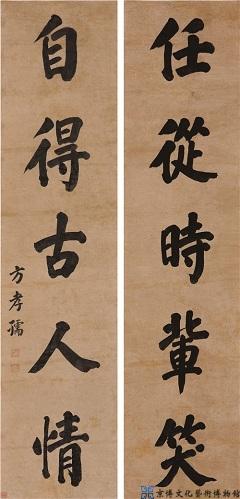 任從時輩笑
自得古人情
方孝孺
京博文化藝術博物館